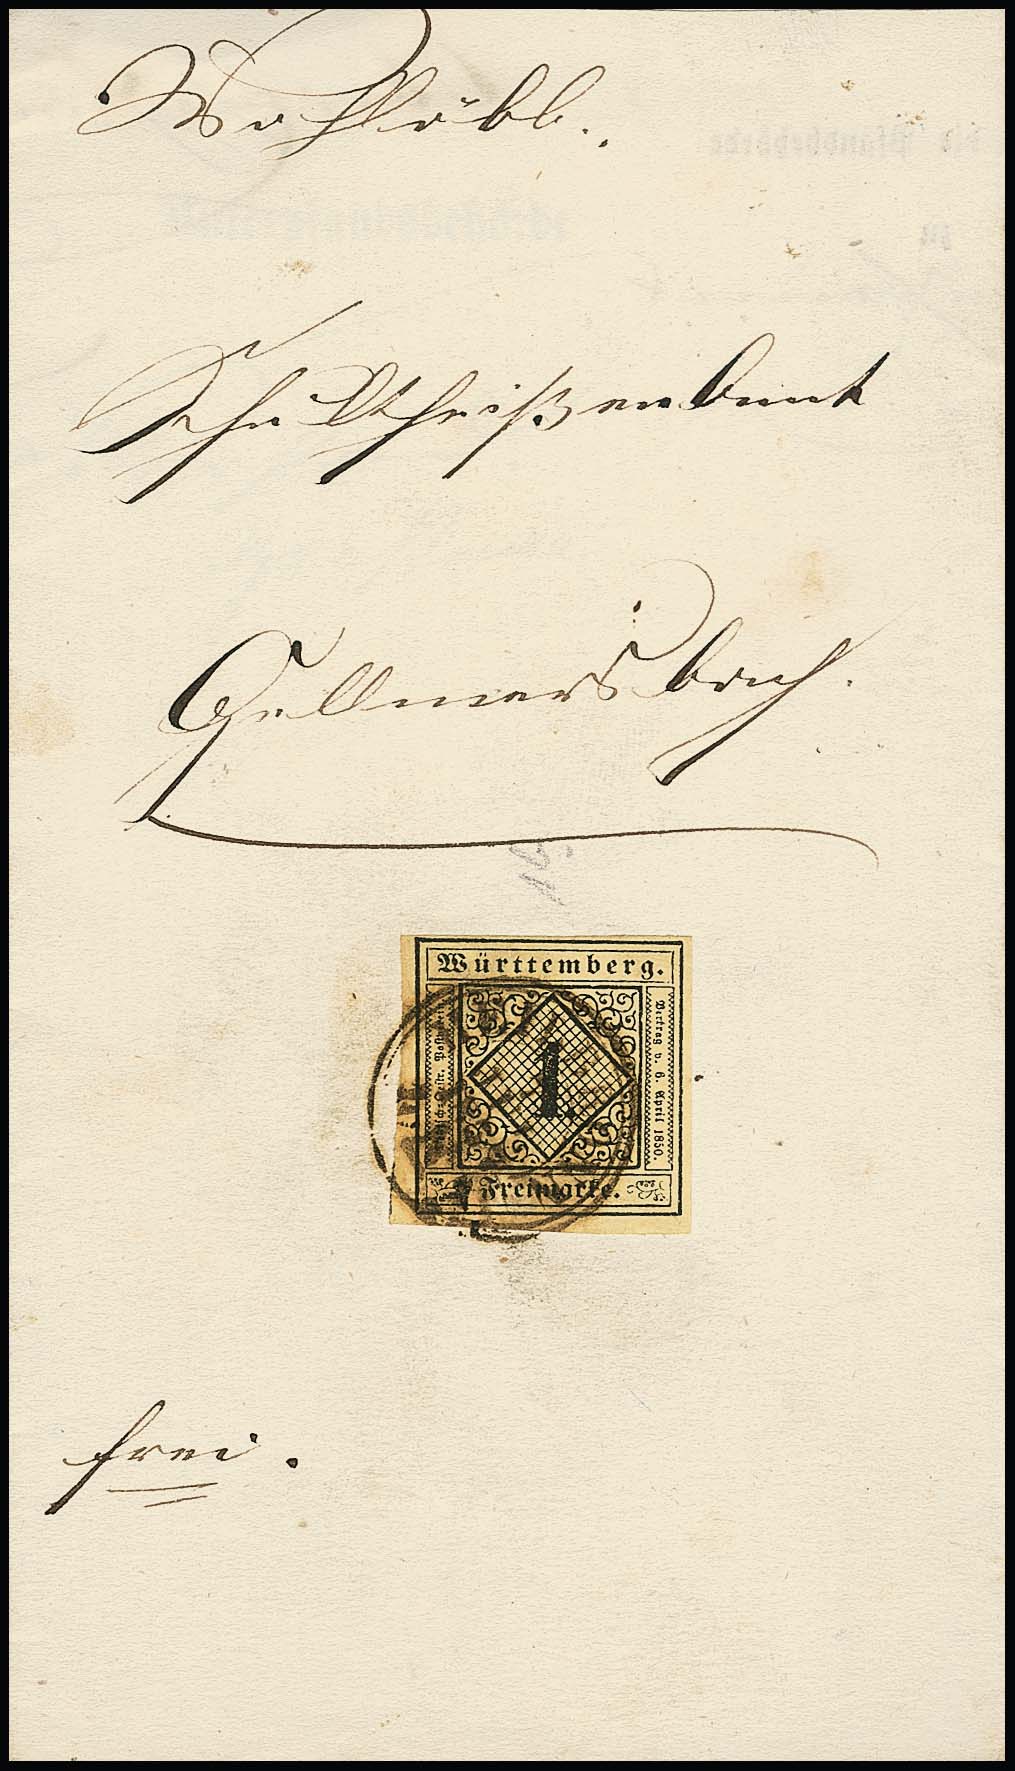 Wohllöbl.
Schultheißenamt
Gellmersbach.
Württemberg.
Vertrag v. 6. April 1850.
1.
Freimarke.
frei.